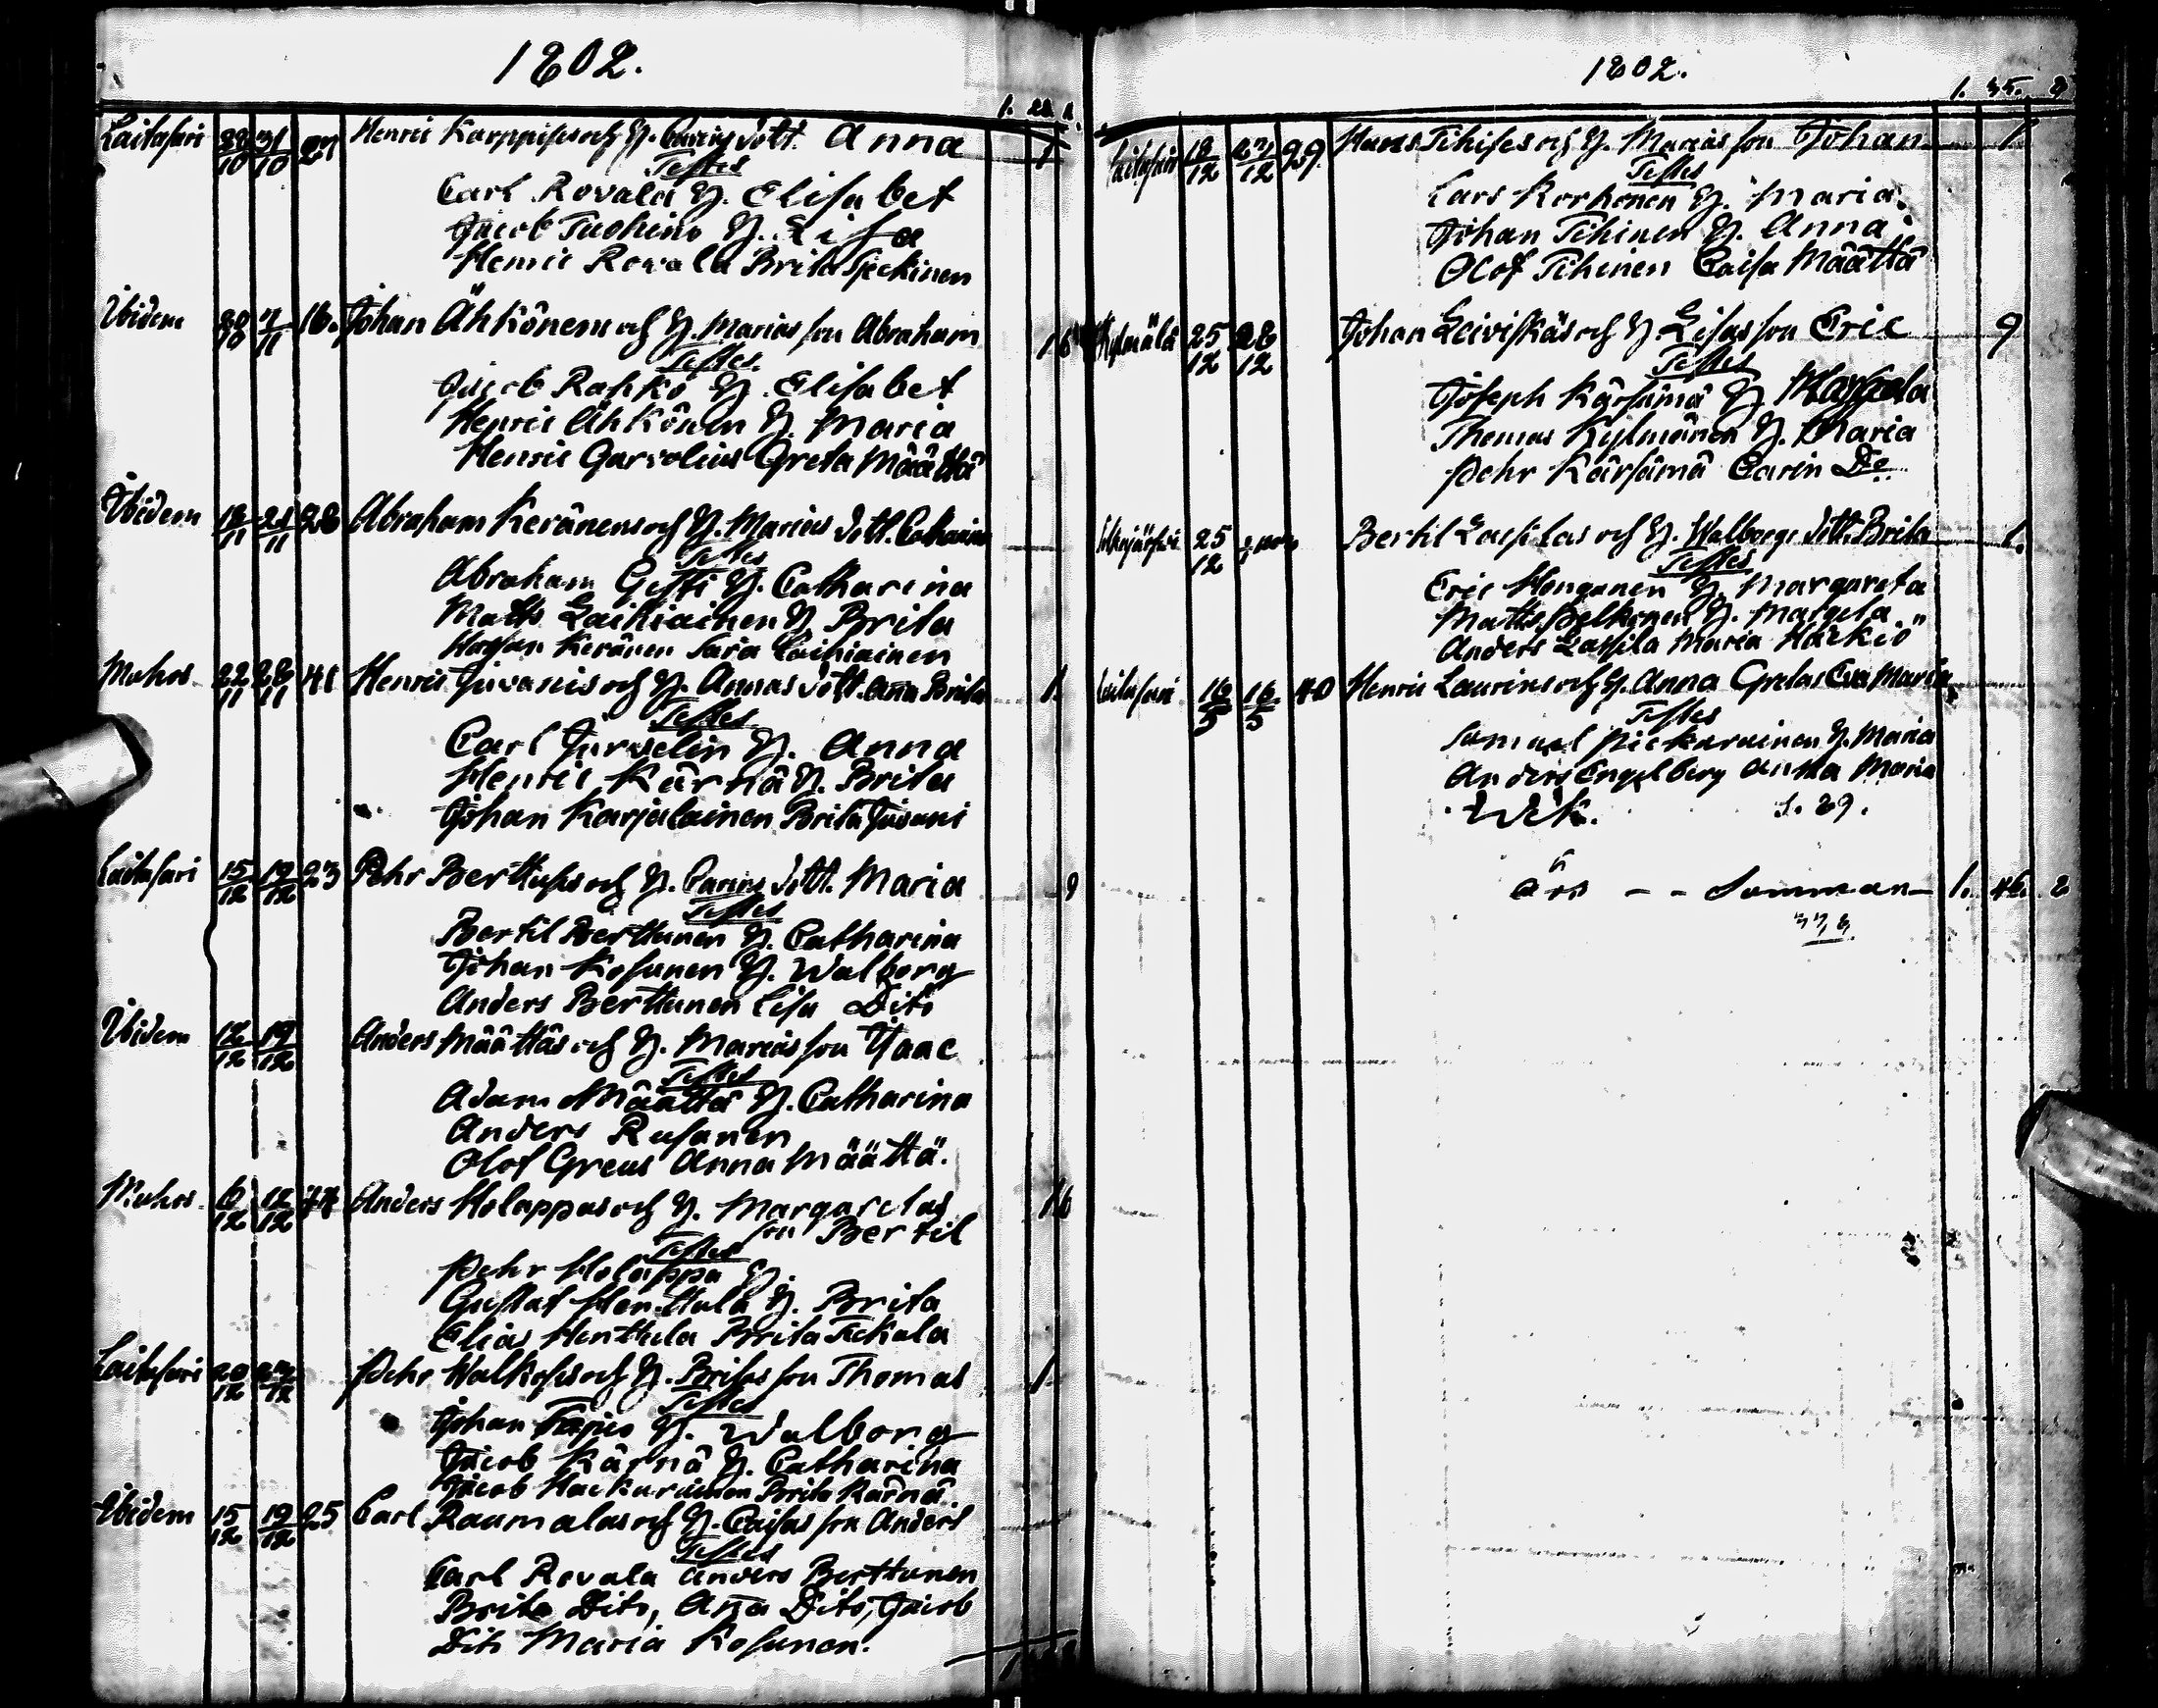 1802.
Laitasari 28/10 31/10 27 Henric Karppises och H. Carins dott. Anna 1
Testes
Carl Rovala H. Elisabet
Jacob Tuohino H. Lisa
Henric Rovala Brita Tjeckinen
Ibidem 30/10 7/11 16. Johan Ähkönens och H. Marias son Abraham 16
Testes
Jacob Rahko H. Elisabet
Henric Ähkönen H. Maria
Henric Garvolius Greta Määttä
Ibidem 18/11 21/11 28 Abraham Keränens och H. Marias dott. Catharina
Testes
Abraham Getti H. Catharina
Matts Laitiainen H. Brita
Keränen Sara
Muhos 22/11 28/11 41 Henric Juvanis och H. Annas dott. Anna Brita 1.
Testes
Carl Jurvelin H. Anna
Henric Kärnä H. Brita
Johan Karjalainen Brita Juvani
Laitasari 15/12 19/12 23 Pehr Berttuses och H. Carins dott. Maria 9
Testes
Bertil Berttunen H. Catharina
Johan Kosunen H. Walborg
Anders Berttunen Lisa Dito
Ibidem 12/12 19/12 Anders Määttäs och H. Marias son Isaac
Testes
Adam Määttä H. Catharina
Anders Rusanen
Olof Greus Anna Määttä.
Muhos 6/12 12/12 44 Anders Holappas och H. Margaretas 16
son Bertil
Testes
Pehr Holappa H.
Gustaf Henttula H. Brita
Elias Henttula Brita Tickala
Laitasari 20/12 27/12 Pehr Walkoses och H. Britas son Thomas 1
Testes
Johan Tapio H. Walborg
Jacob Kärnä H. Catharina
Jacob Hackarainen Brita Kärnä
Ibidem 15/12 19/12 25 Carl Raumalas och H. Caisas son Anders
Testes
Carl Rovala Anders Berttunen
Brita Dito, Anna Dito, Jacob
Dito Maria Kosunen.
1802.
1. 35. 2
Laitasari 19/12 27/12 29 Hans Tihises och H. Marias son Johan 1.
Testes
Lars Korhonen H. Maria.
Johan Tihinen H. Anna.
Olof Tihinen Caisa Määttä
Kylmälä 25/12 28/12 Johan Leiviskäs och H. Lisas son Eric 9
Testes
Joseph Kärsämä H.
Thomas Kylmänen H. Maria
Pehr Kärsämä Carin Do
25/12 Bertil Lassilas och H. Walborgs dott. Brita 1.
Testes
Eric Honganen H. Margareta
Matts Pelkonen H. Margeta
Anders Lassila Maria Härkiö
Laitasari 16/5 16/5 40 Henric Laurins och H. Anna Gretas Eva Maria
Testes
Samuel Pickarainen H. Maria
Anders Engelberg Anna Maria
Wik. s. 29.
års - - Summan - 1. 46. 2